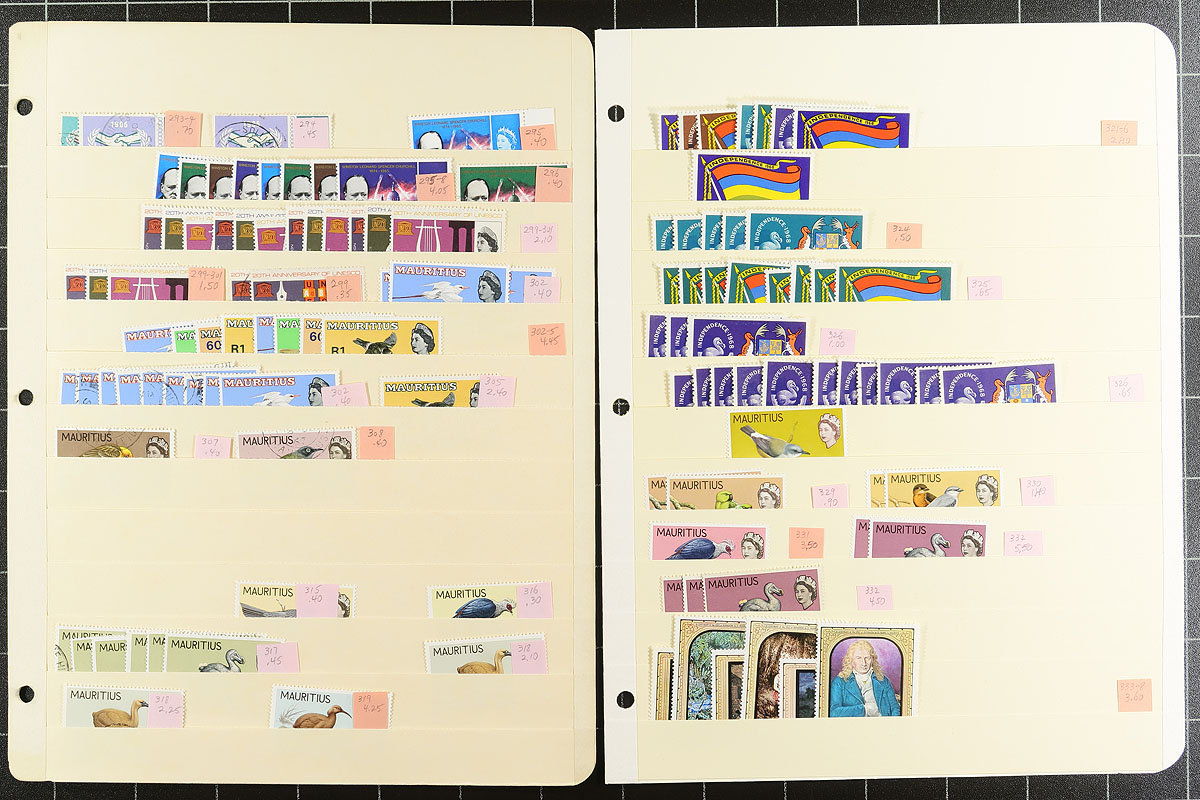 1965
293-4
.70
294
.45
WINSTON SPENCER CHURCHILL
1874-1965
295
.40
WINSTON LEONARD SPENCER CHURCHILL
1874-1965
295-8
4.05
296
.40
20TH ANNIVERSARY OF UNESCO
299-301
2.10
299-301
1.50
20TH ANNIVERSARY OF UNESCO
299
.35
MAURITIUS
302
.40
MAURITIUS
60
R1
MAURITIUS
R1
302-5
4.45
MAURITIUS
302
.40
MAURITIUS
305
2.40
MAURITIUS
307
.40
MAURITIUS
308
.60
MAURITIUS
315
.40
MAURITIUS
316
.30
MAURITIUS
317
.45
MAURITIUS
318
2.10
MAURITIUS
318
2.25
MAURITIUS
319
4.25
INDEPENDENCE 1968
321-6
INDEPENDENCE 1968
INDEPENDENCE 1968
324
.50
INDEPENDENCE 1968
325
.65
INDEPENDENCE 1968
326
1.00
INDEPENDENCE 1968
326
.65
MAURITIUS
MAURITIUS
329
.90
MAURITIUS
330
MAURITIUS
331
3.50
MAURITIUS
332
5.50
MAURITIUS
332
4.50
333-8
3.60